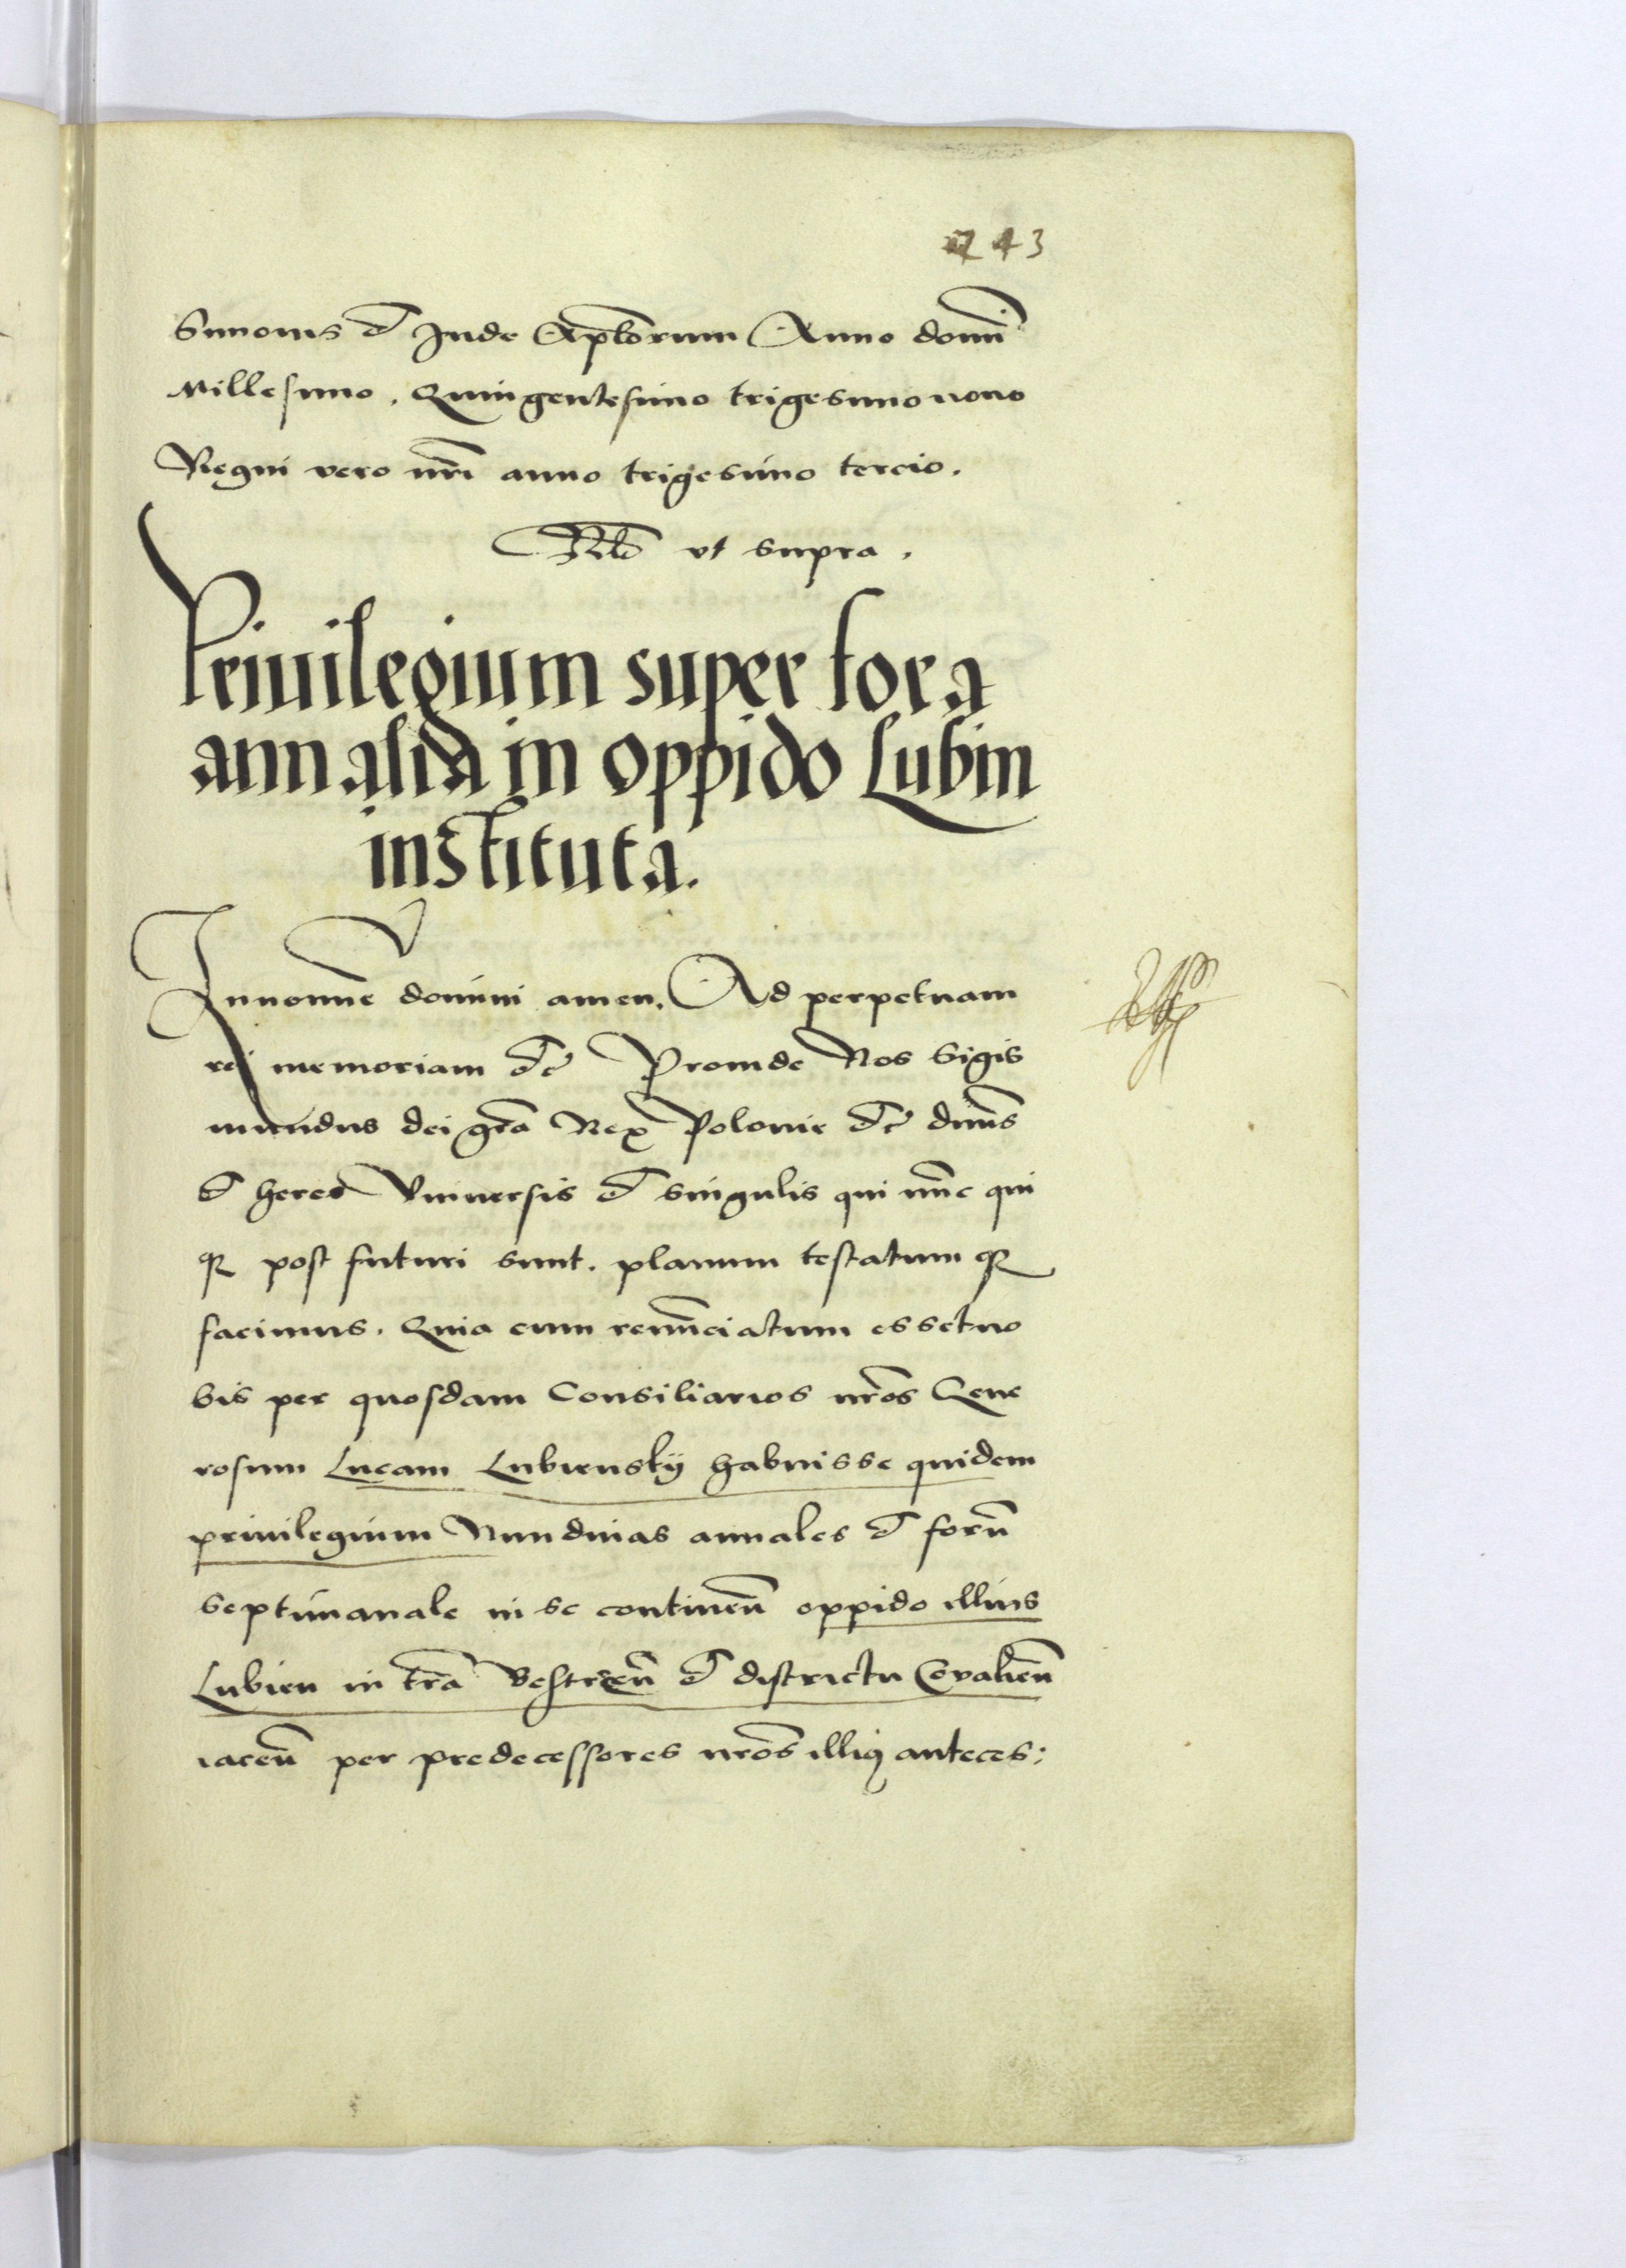 243
Simonis et Jude Aplorum Anno domi
Millesimo. Quingentesimo trigesimo nono
Regni vero nri anno trigesimo tercio.
ut supra.
Priuilegium super fora
annalia in oppido Lubin
instituta.
In nomine domini amen. Ad perpetuam
rei memoriam etc Proinde Nos Sigis
mundus dei gra Rex Polonie etc dnus
et heres Vniuersis et singulis qui nunc qui
que post futuri sunt. planum testatumque
facimus. Quia cum renunciatum esset no
bis per quosdam Consiliarios nros Gene
rosum Lucam Lubiensky habuisse quidem
priuilegium Nundinas annales et foru
septimanale in se continen oppido illius
Lubien in tra Bestrzen et districtu Covalien
iacen per predecessores nros illius anteces: